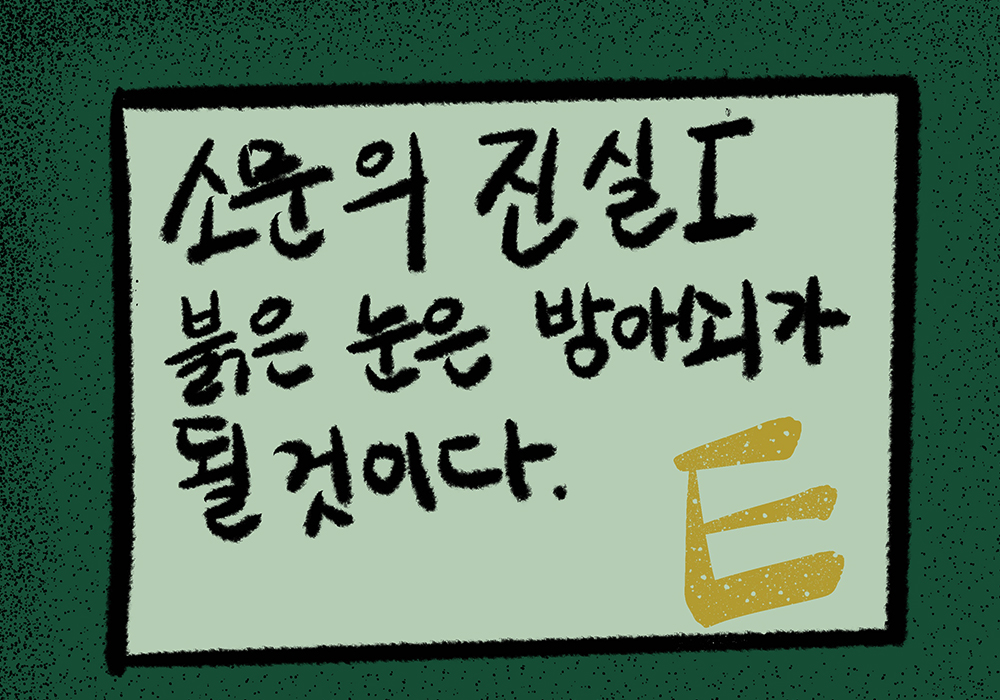 소문의 진실 I
붉은 눈은 방아쇠가
될 것이다.
E